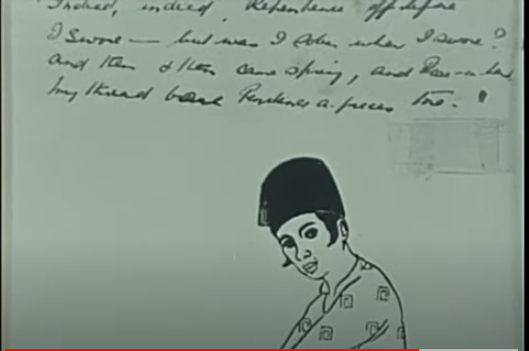 "Indeed, indeed, Repentance oft before
I Swore — but was I sober when I swore?
and then & then came Spring, and Rose-in-hand
my thread bare Penitence a-pieces tore."